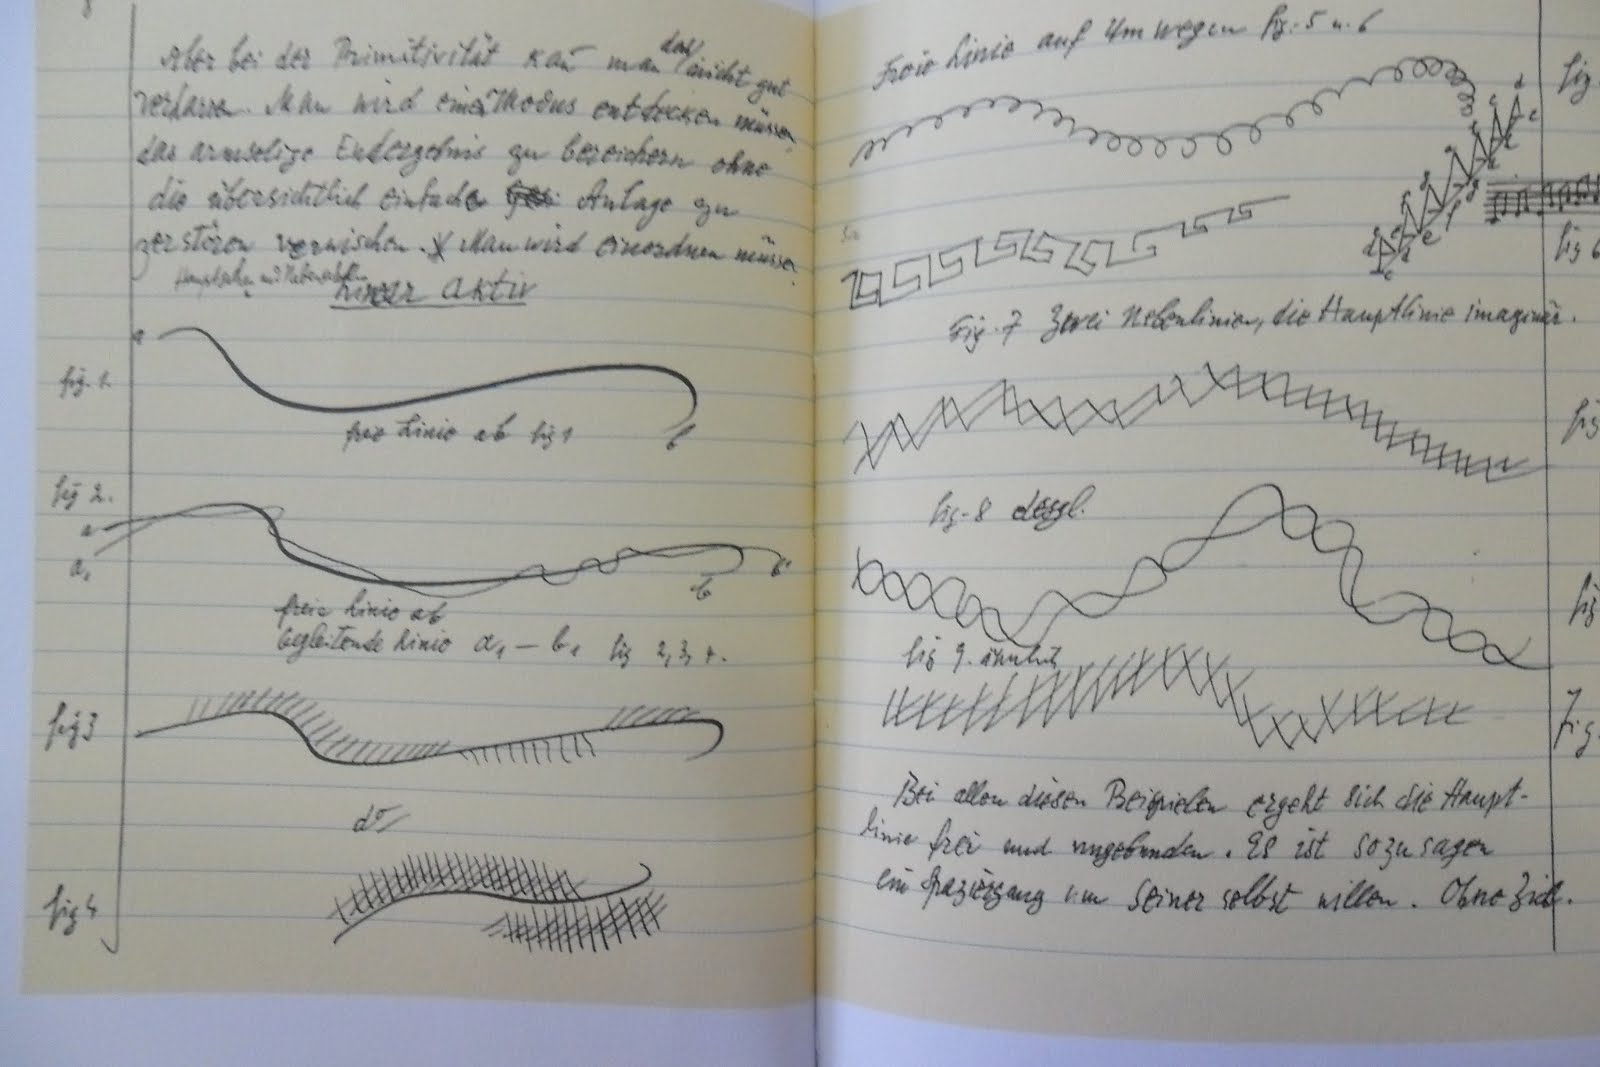 Aber bei der Primitivität kan̄ man das nicht gut
verharren. Man wird einen Modus entdecken müssen
das armselige Endergebnis zu bereichern ohne
die übersichtlich einfache Anlage zu
zerstören verwischen. X Man wird einordnen müssen
Hauptsachen und Nebensachen
Linear aktiv
a
fig. 1.
freie Linie ab fig 1
b
fig 2.
a
a1
b
b1
freie Linie ab
begleitende Linie a1 – b1 fig 2, 3, 4.
fig 3
dº
fig 4
Freie Linie auf Umwegen fig. 5 u. 6
fig
fig 6
Fig. 7 Zwei Nebenlinien, die Hauptlinie imaginär.
fig
fig. 8 desgl.
fig
fig 9. ähnlich
fig.
Bei allen diesen Beispielen ergeht sich die Haupt-
linie frei und ungebunden. Es ist sozusagen
ein Spaziergang um seiner selbst willen. Ohne Ziel.